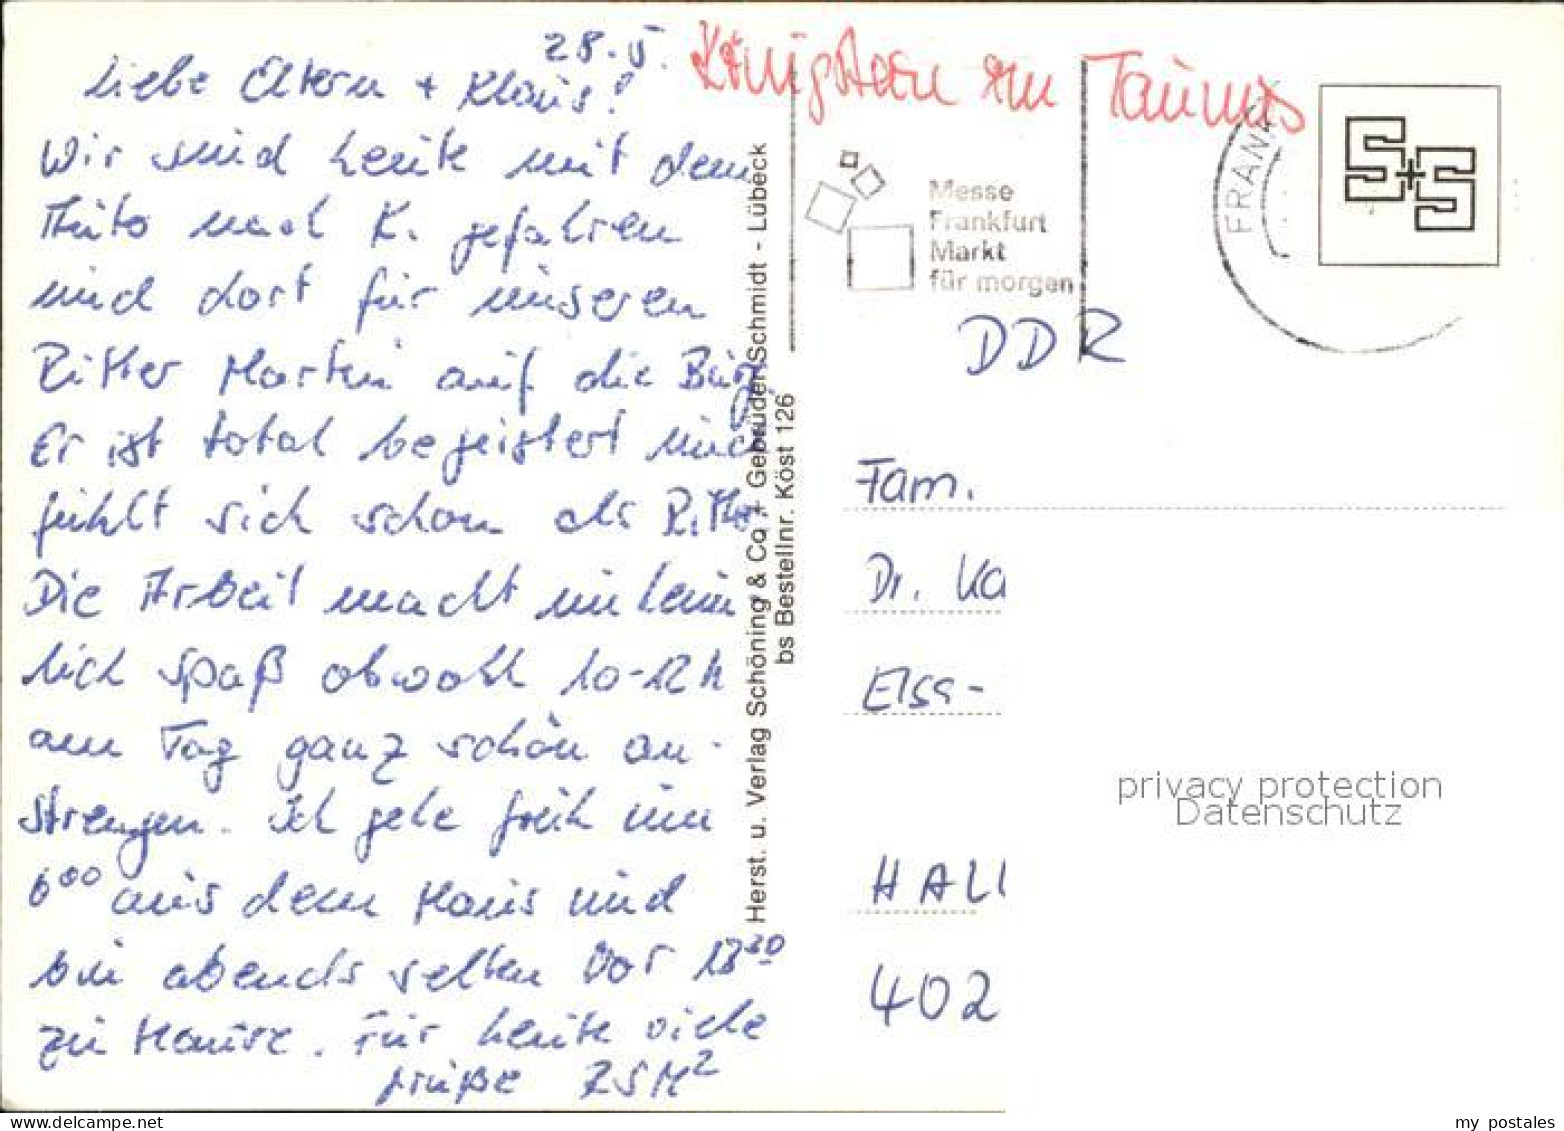 28.5.
Liebe Eltern + Klaus!
Wir sind heute mit dem
Auto nach K. gefahren
und dort für unseren
Ritter Martin auf die Burg.
Er ist total begeistert und
fühlt sich schon als Ritter
Die Arbeit macht unheim
lich Spaß obwohl 10-12 h
am Tag ganz schön an-
strengen. Ich gehe früh um
6⁰⁰ aus dem Haus und
bin abends selten vor 18³⁰
zu Hause. Für heute viele
Grüße
Königstein im Taunus
Herst. u. Verlag Schöning & Co. + Gebrüder Schmidt - Lübeck
bs Bestellnr. Köst 126
Messe
Frankfurt
Markt
für morgen
FRANK
S+S
DDR
Fam.
Dr. Ka
Elsa-
HALL
402
privacy protection
Datenschutz
my postales